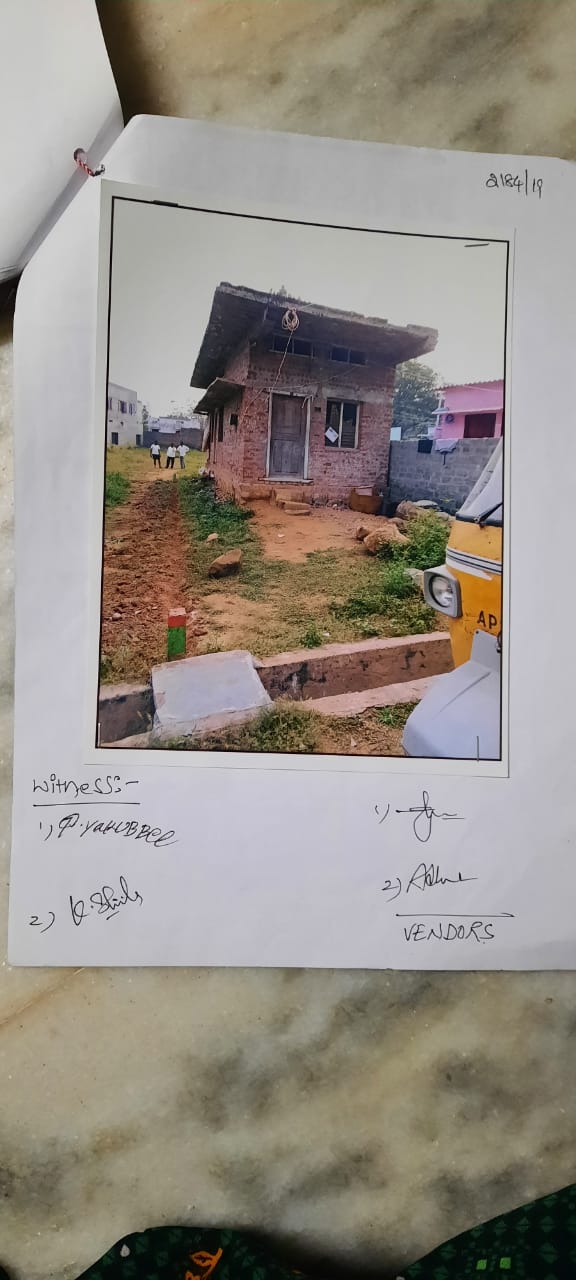 2184/19
AP
Witness:-
1) P. YAKUBBEE
1)
2)
2)
VENDORS